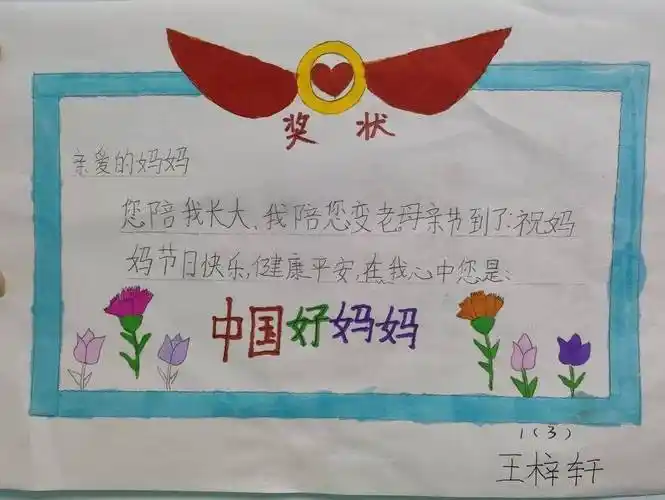 奖状
亲爱的妈妈
您陪我长大、我陪您变老,母亲节到了:祝妈
妈节日快乐,健康平安,在我心中您是:
中国好妈妈
1(3)
王梓轩